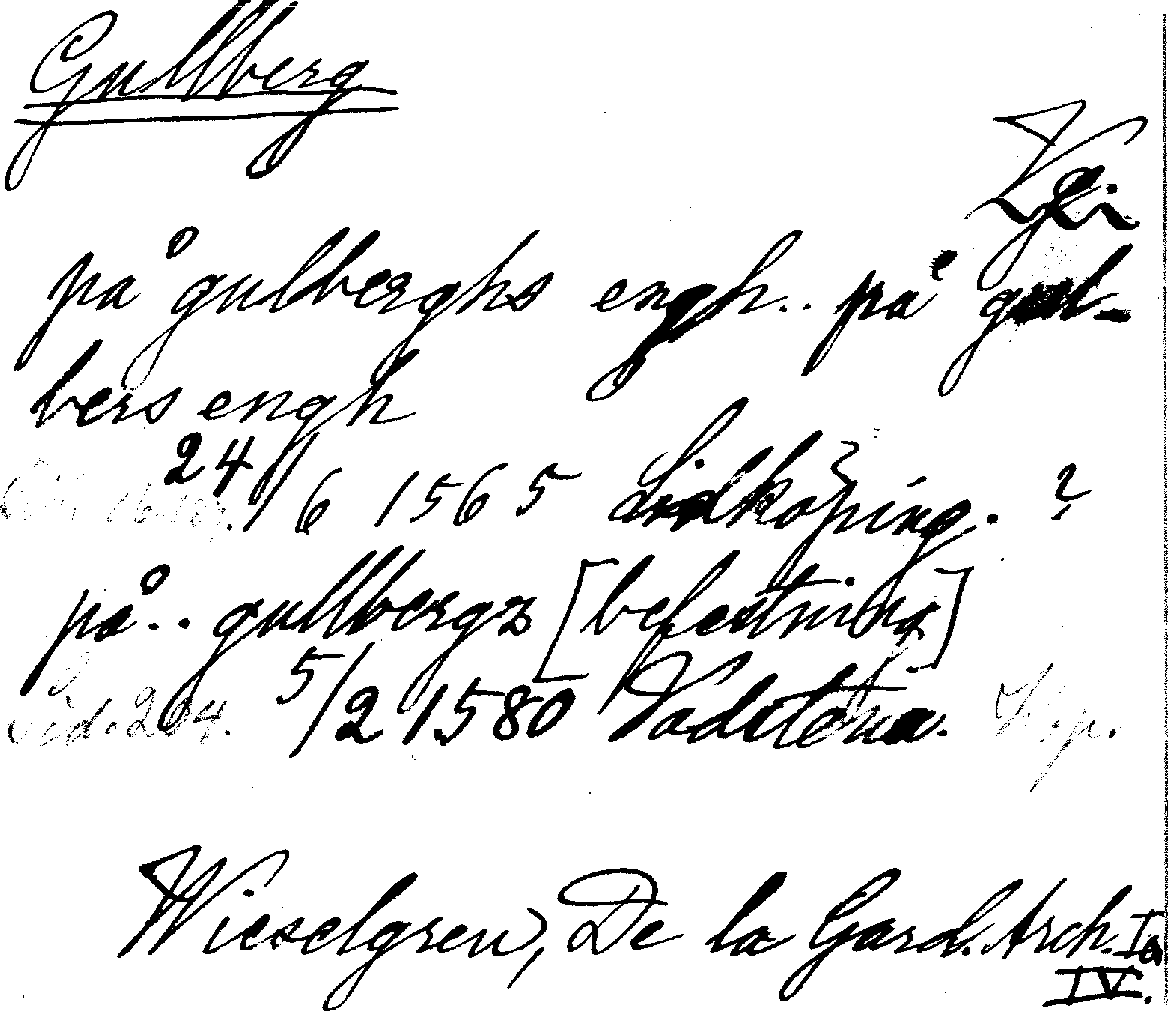 Gullberg
på gulberghs engh.. på gul-
bers engh
24/6 1565 Lidköping. ?
på.. gullbergz [befestning]
Sid. 204. 5/2 1580 Vadstena.
Wieselgren, De la Gard. Arch. Ia
IV.